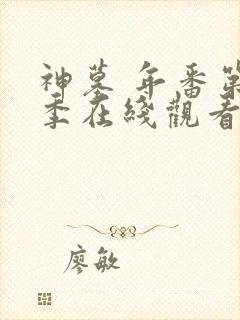 神墓 年番第
季在綫觀看
廖敏